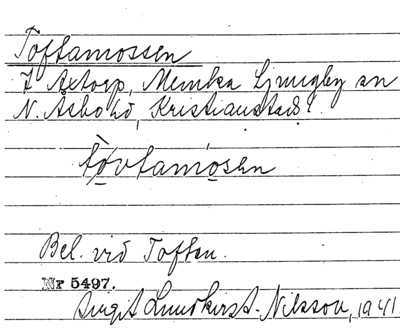 Toftamossen
I Axtorp, Munka Ljungby sn
N. Åsbo hd, Kristianstads l.
tòvtamósen
Bel. vid Toften.
Nr 5497.
Birgit Lundkvist-Nilsson, 1941